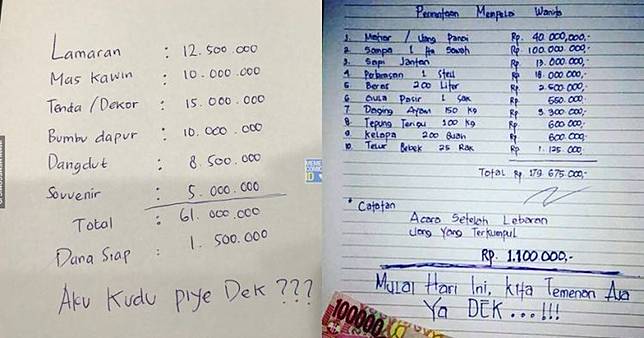 Lamaran : 12.500.000
Mas kawin : 10.000.000
Tenda /Dekor : 15.000.000
Bumbu dapur : 10.000.000
Dangdut : 8.500.000
Souvenir : 5.000.000
Total : 61.000.000
Dana Siap : 1.500.000
Aku Kudu piye Dek ???
MEME
COMIC
ID
Permintaan Mempelai Wanita
1. Mahar / Uang Panai Rp. 40.000.000,-
2. Sompa 1 Ha Sawah Rp. 100.000.000,-
3. Sapi Jantan Rp. 13.000.000,-
4. Perhiasan 1 Stell Rp. 18.000.000,-
5. Beras 200 Liter Rp. 2.500.000,-
6. Gula Pasir 1 Sak Rp. 550.000,-
7. Daging Ayam 150 Kg Rp. 3.300.000,-
8. Tepung Terigu 100 Kg Rp. 600.000,-
9. Kelapa 200 Buah Rp. 600.000,-
10. Telur Bebek 25 Rak Rp. 1.125.000,-
Total Rp 179.675.000,-
* Catatan
Acara Setelah Lebaran
Uang Yang Terkumpul
Rp. 1.100.000,-
Mulai Hari Ini, kita Temenan Aja
Ya DEK...!!!
100000